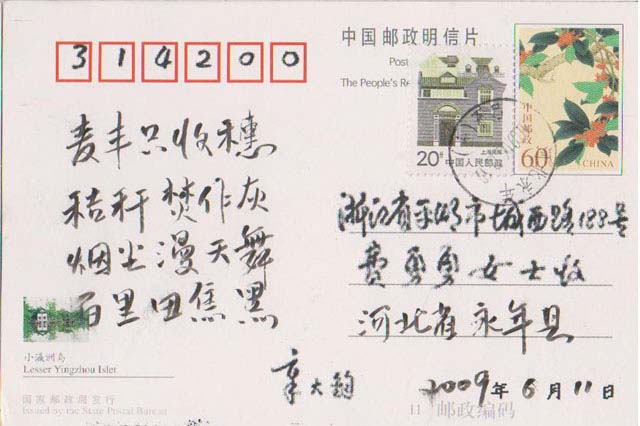 314200
中国邮政明信片
Post
The People's Re
上海民居
20分 中国人民邮政
中国邮政
60分
CHINA
麦丰只收穗
秸秆焚作灰
烟尘漫天舞
百里田焦黑
浙江省平湖市城西路188号
费勇勇女士收
河北省永年县
章大钧
2009年6月11日
小瀛洲岛
Lesser Yingzhou Islet
国家邮政局发行
Issued by the State Postal Bureau
11 邮政编码